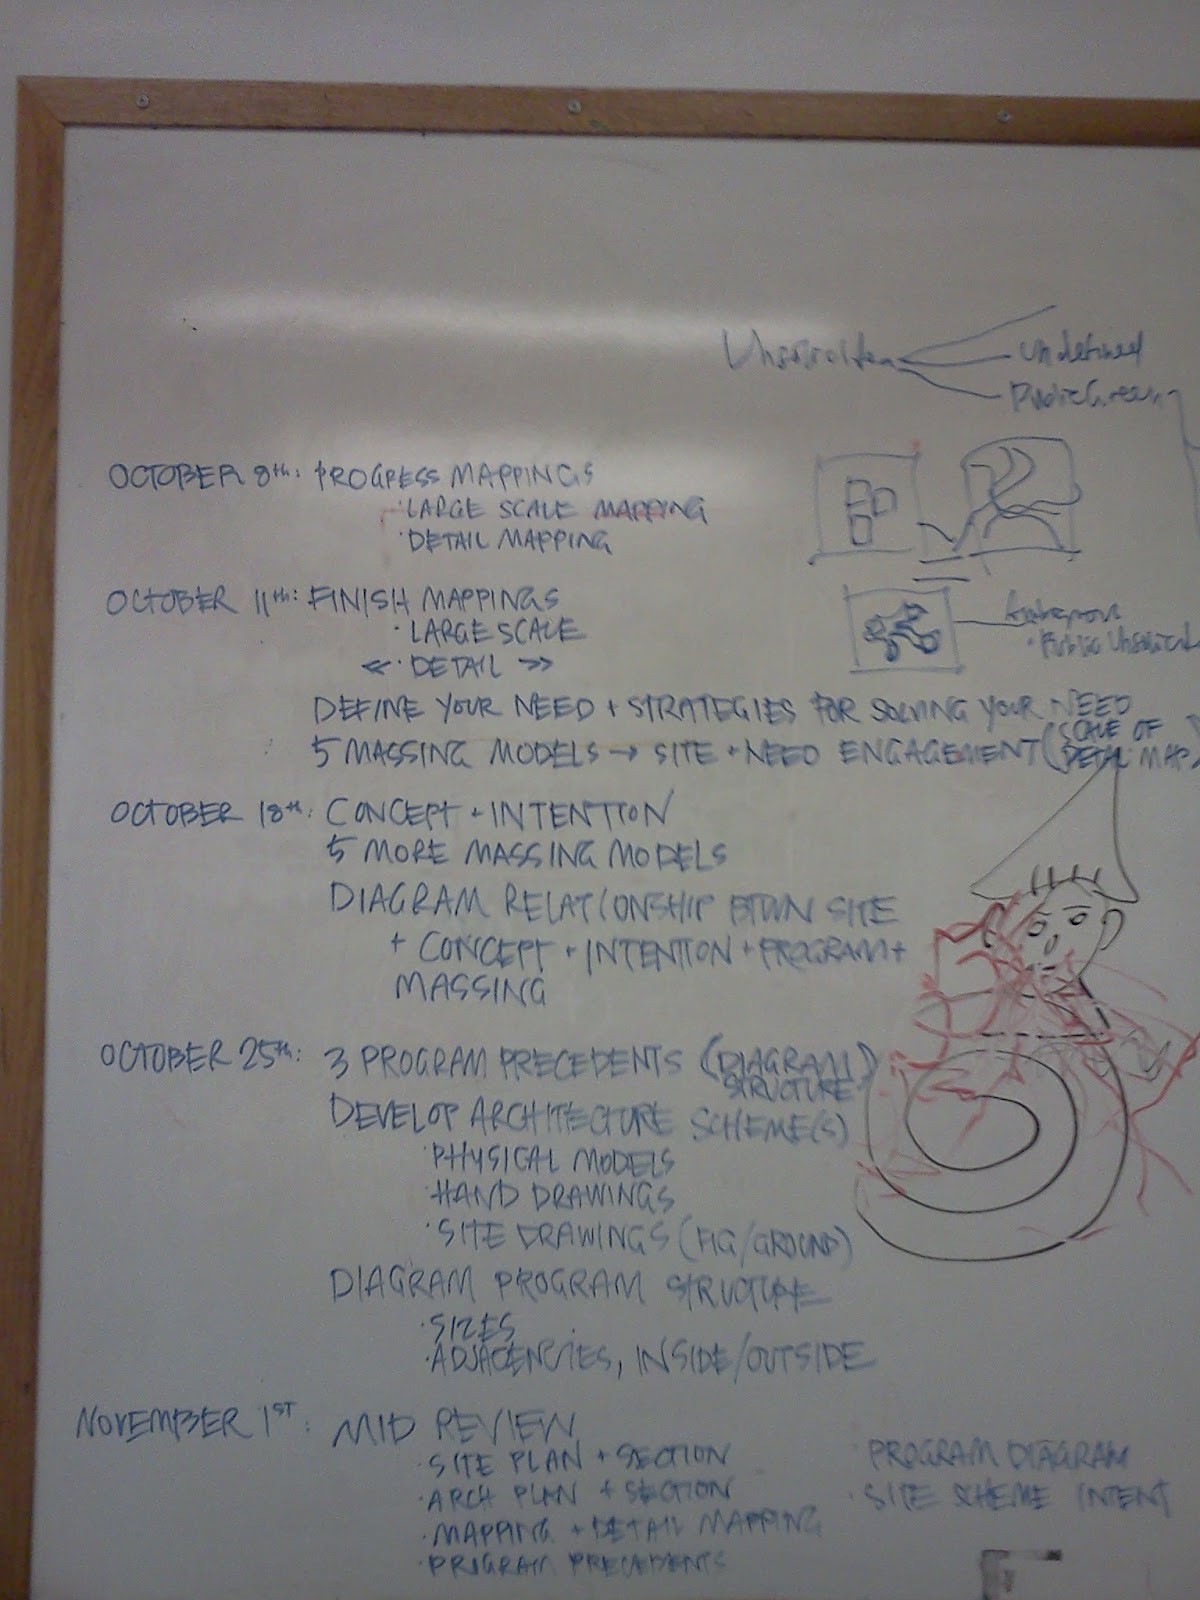 undefined
OCTOBER 8th: PROGRESS MAPPINGS
· LARGE SCALE MAPPING
· DETAIL MAPPING
OCTOBER 11th: FINISH MAPPINGS
· LARGE SCALE
<< · DETAIL >>
· Public
DEFINE YOUR NEED + STRATEGIES FOR SOLVING YOUR NEED
5 MASSING MODELS → SITE + NEED ENGAGEMENT (SCALE OF
DETAIL MAP)
OCTOBER 18th: CONCEPT + INTENTION
5 MORE MASSING MODELS
DIAGRAM RELATIONSHIP BTWN SITE
+ CONCEPT + INTENTION + PROGRAM +
MASSING
OCTOBER 25th: 3 PROGRAM PRECEDENTS (DIAGRAM)
STRUCTURE
DEVELOP ARCHITECTURE SCHEME(S)
· PHYSICAL MODELS
· HAND DRAWINGS
· SITE DRAWINGS (FIG/GROUND)
DIAGRAM PROGRAM STRUCTURE
· SIZES
· ADJACENCIES, INSIDE/OUTSIDE
NOVEMBER 1ST: MID REVIEW
· SITE PLAN + SECTION
· ARCH PLAN + SECTION
· MAPPING + DETAIL MAPPING
· PROGRAM PRECEDENTS
· PROGRAM DIAGRAM
· SITE SCHEME INTENT